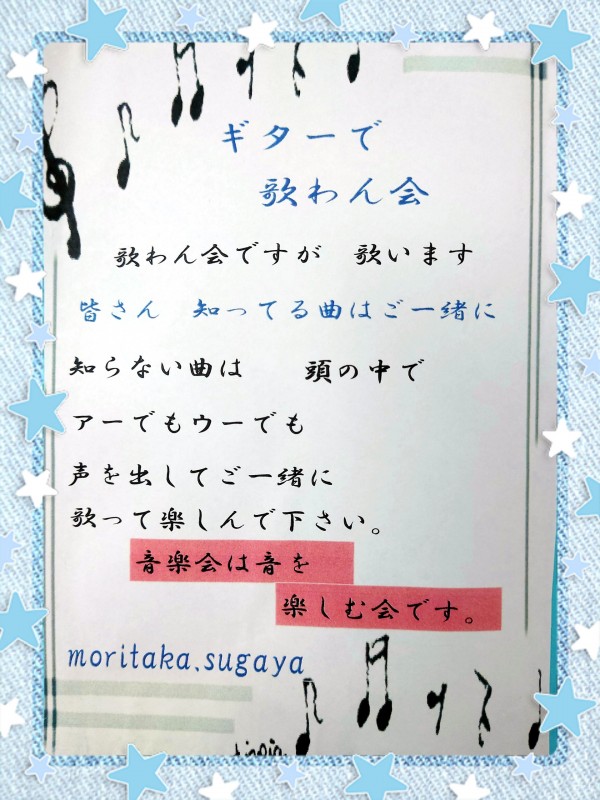 ギターで
歌わん会
歌わん会ですが 歌います
皆さん 知ってる曲はご一緒に
知らない曲は 頭の中で
アーでもウーでも
声を出してご一緒に
歌って楽しんで下さい。
音楽会は音を
楽しむ会です。
moritaka.sugaya